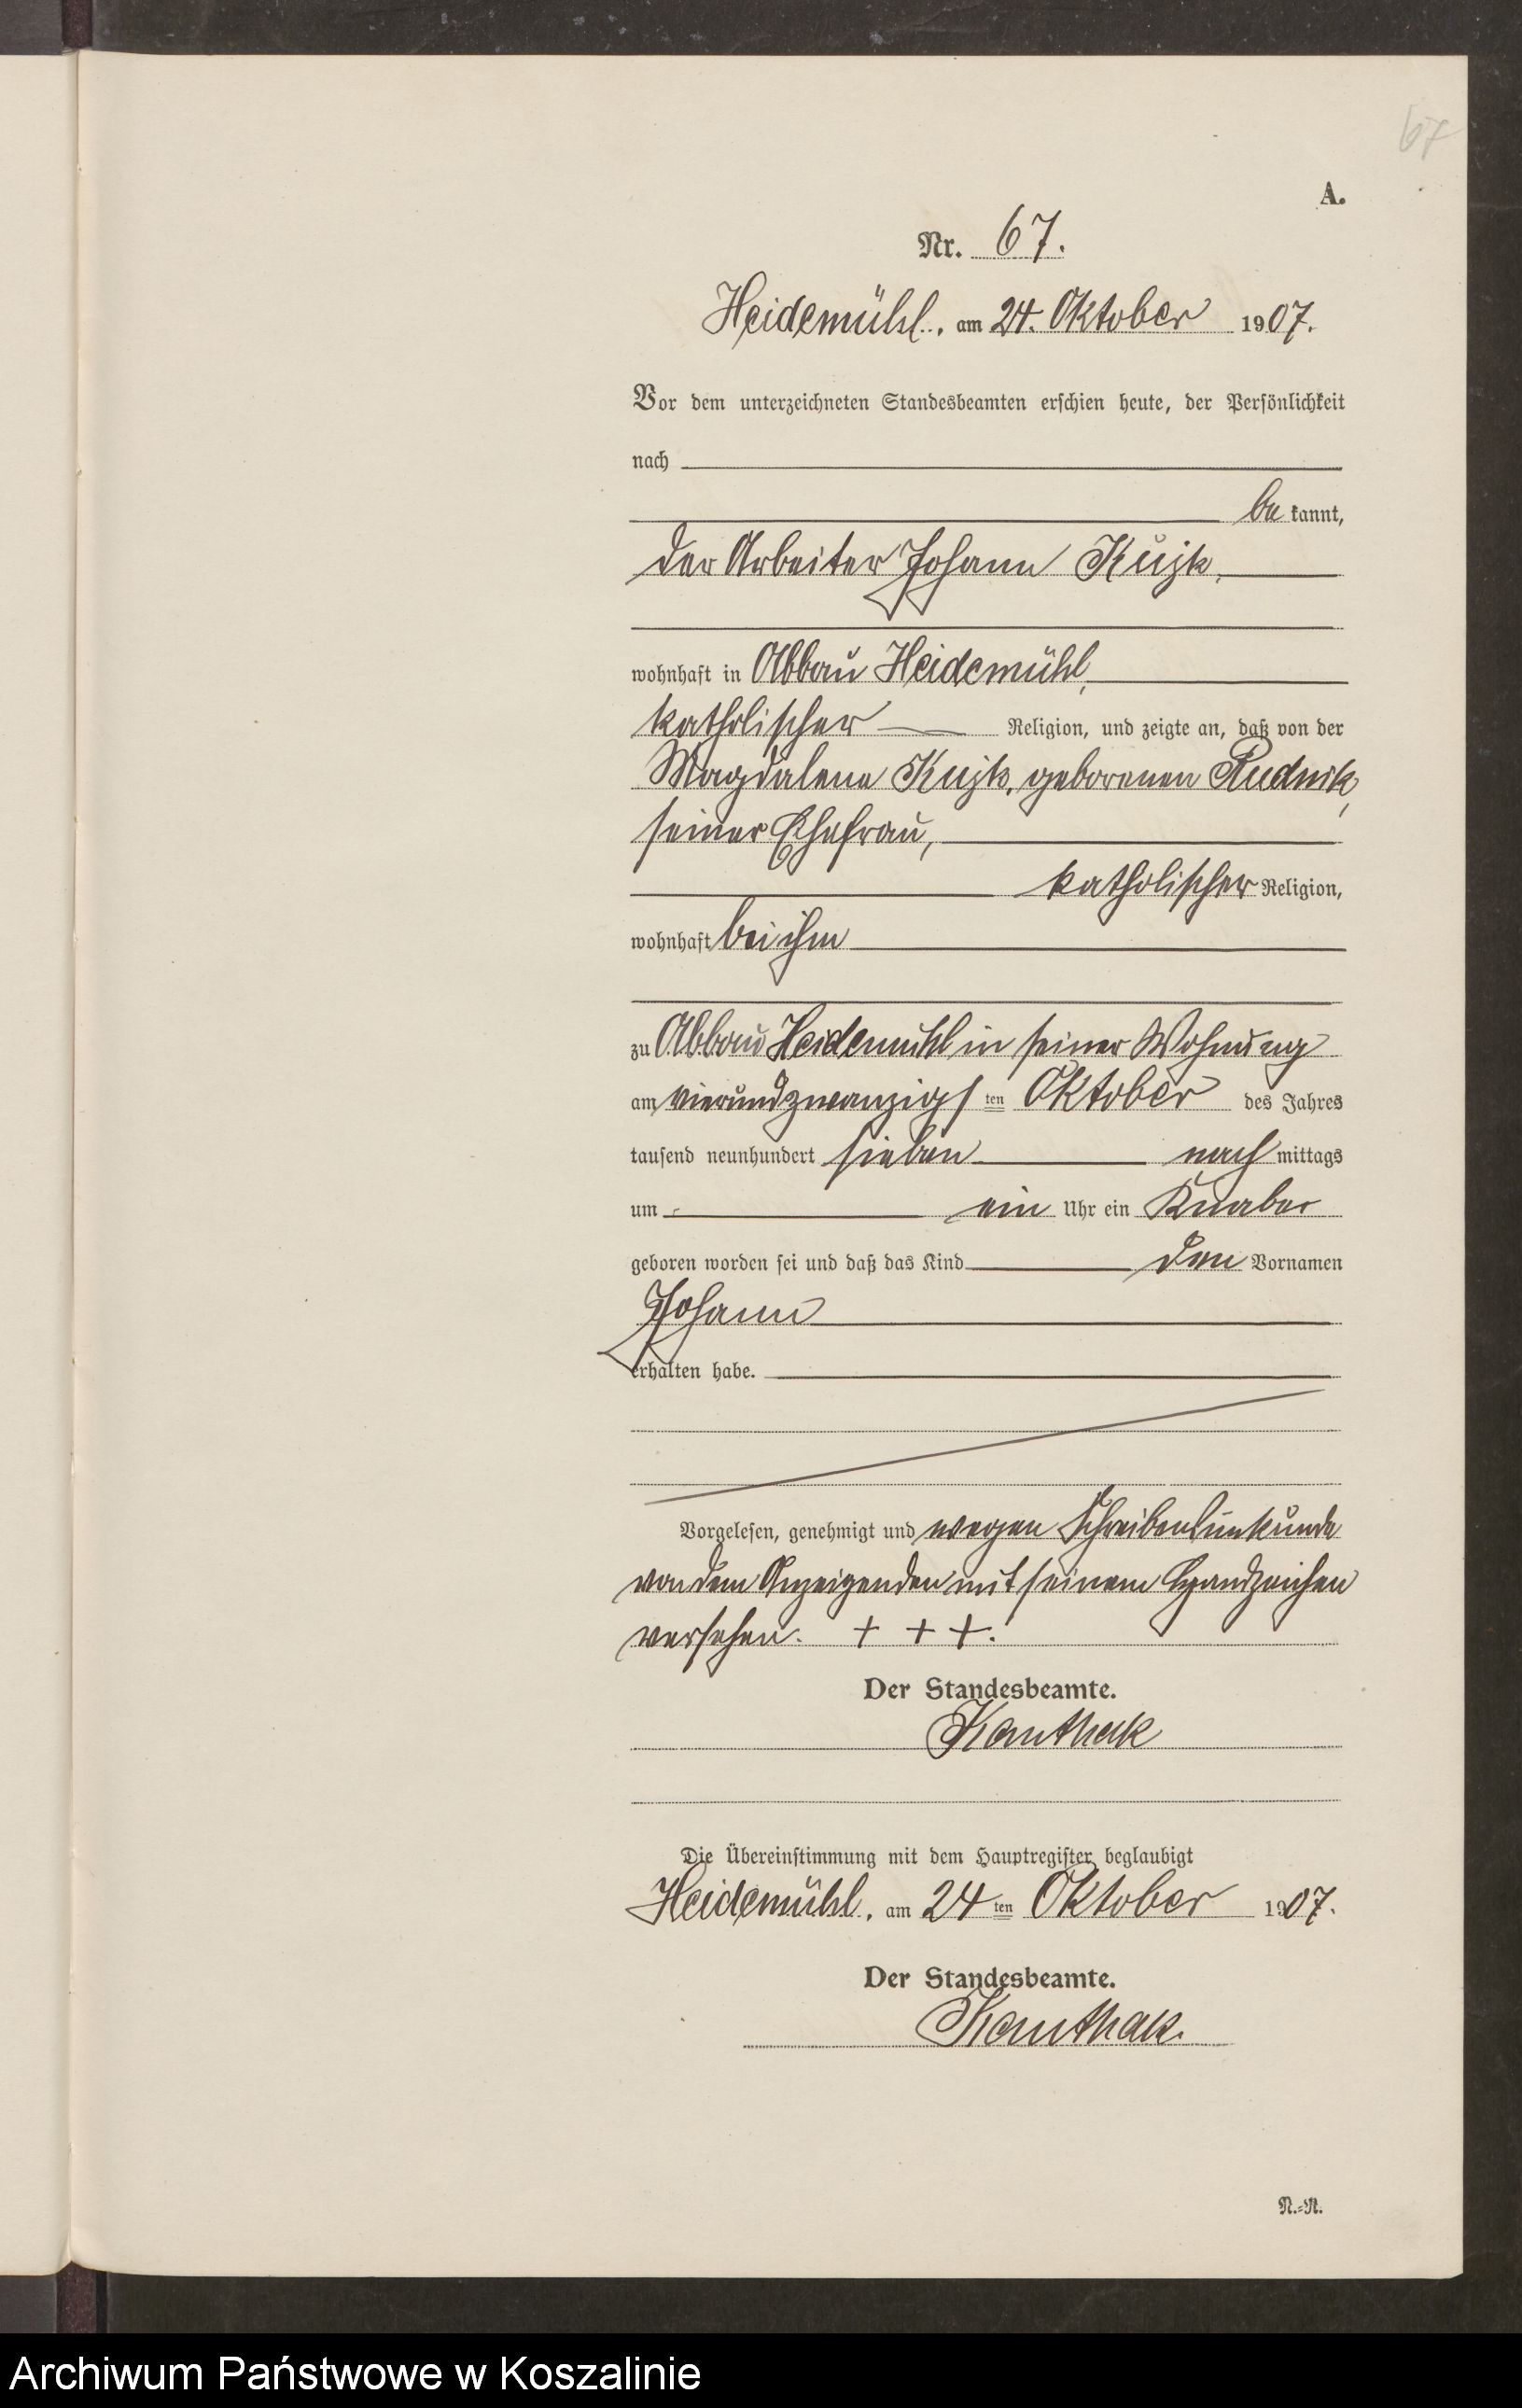 67
A.
Nr. 67.
Heidemühl, am 24. Oktober 1907.
Vor dem unterzeichneten Standesbeamten erschien heute, der Persönlichkeit
nach
be kannt,
der Arbeiter Johann Kujk,
wohnhaft in Abbau Heidemühl,
katholischer Religion, und zeigte an, daß von der
Magdalena Kujk, geborenen Rudnik,
seiner Ehefrau,
katholischer Religion,
wohnhaft bei ihm
zu Abbau Heidemühl in seiner Wohnung
am vierundzwanzigs ten Oktober des Jahres
tausend neunhundert sieben nach mittags
um ein Uhr ein Knabe
geboren worden sei und daß das Kind den Vornamen
Johann
erhalten habe.
Vorgelesen, genehmigt und wegen Schreibensunkunde
von dem Anzeigenden mit seinem Handzeichen
versehen. + + +.
Der Standesbeamte.
Kanthak
Die Übereinstimmung mit dem Hauptregister beglaubigt
Heidemühl, am 24 ten Oktober 1907.
Der Standesbeamte.
Kanthak.
N.-R.
Archiwum Państwowe w Koszalinie